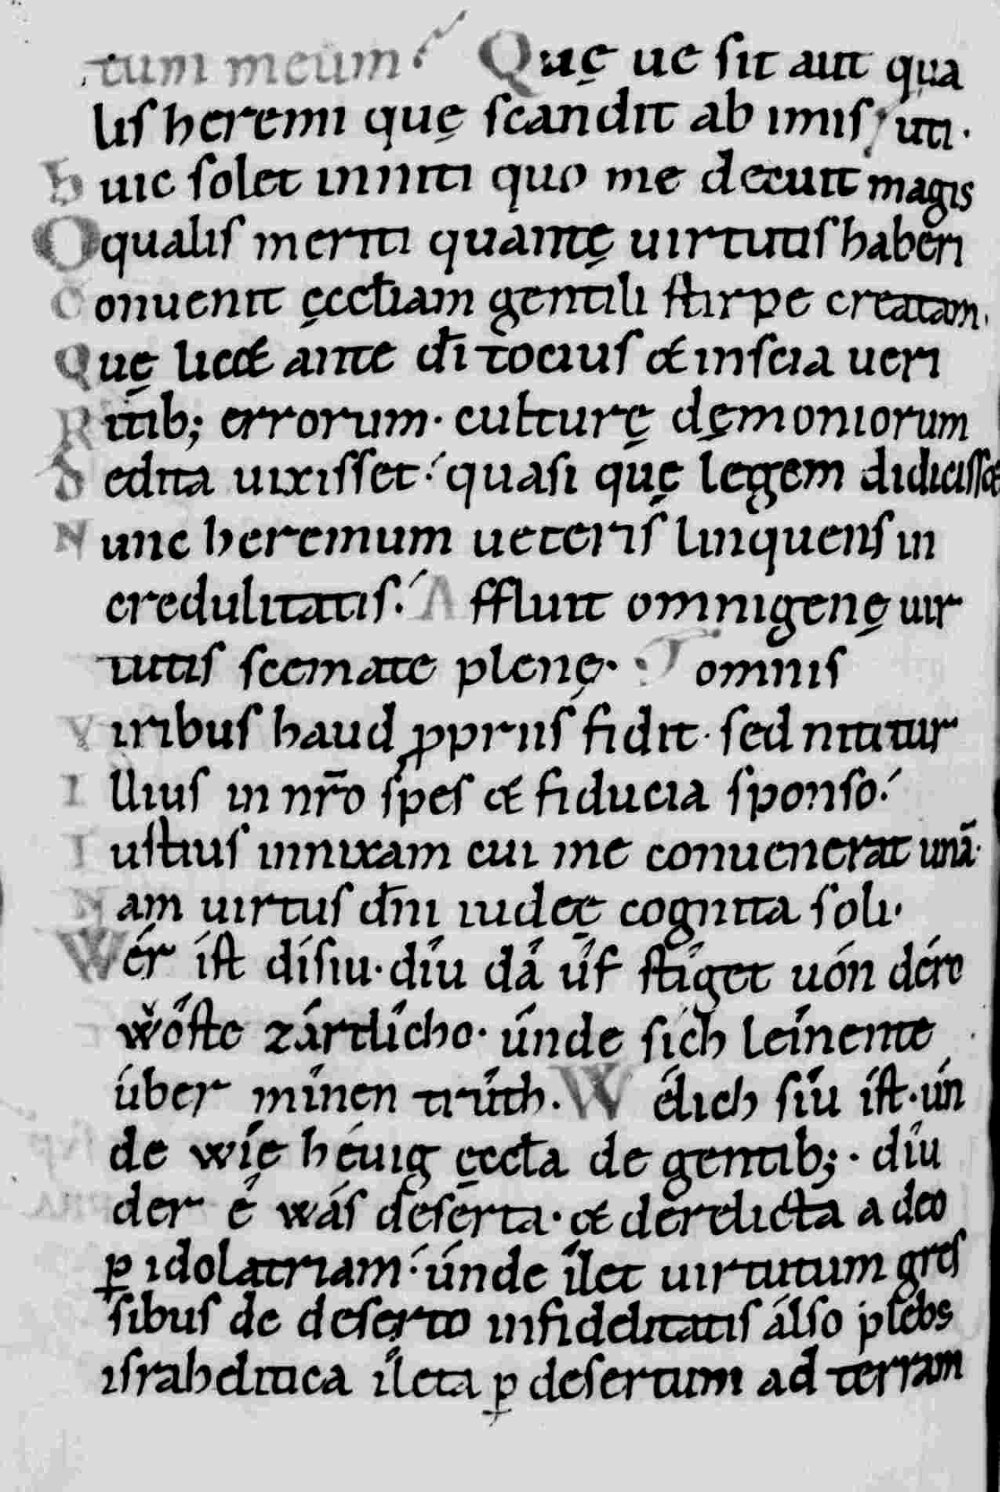 tum meum? Quę ue sit aut qua
lis heremi quę scandit ab imis / uti.
Huic solet inniti quo me decuit magis
O qualis meriti quantę uirtutis haberi
Conuenit ęccłiam gentili stirpe creatam.
Quę licet ante dī tocius et inscia ueri
Ritib; errorum. culturę dęmoniorum
Dedita uixisset. quasi quę legem didicisset
Nunc heremum ueteris linquens in
credulitatis. Affluit omnigenę uir
tutis scemate plenę. Tomnis
Viribus haud ꝓpriis fidit. sed nititur
Illius in nr̄o spes et fiducia sponso.
Iustius innixam cui me conuenerat unā.
Nam uirtus dn̄i iudeę cognita soli.
Wér íst dísiu. díu dá ûf stîget uón déro
wôste zártlícho. únde sích leínente
úber mînen trûth. Wélich síu íst. ún
de wíe héuig ęccła de gentib; . díu
der ê wás deserta. et derelicta a deo
ꝑ idolatriam. únde îlet uirtutum gres
sibus de deserto infidelitatis álso plebs
israhelitica îleta ꝑ desertum ad terram